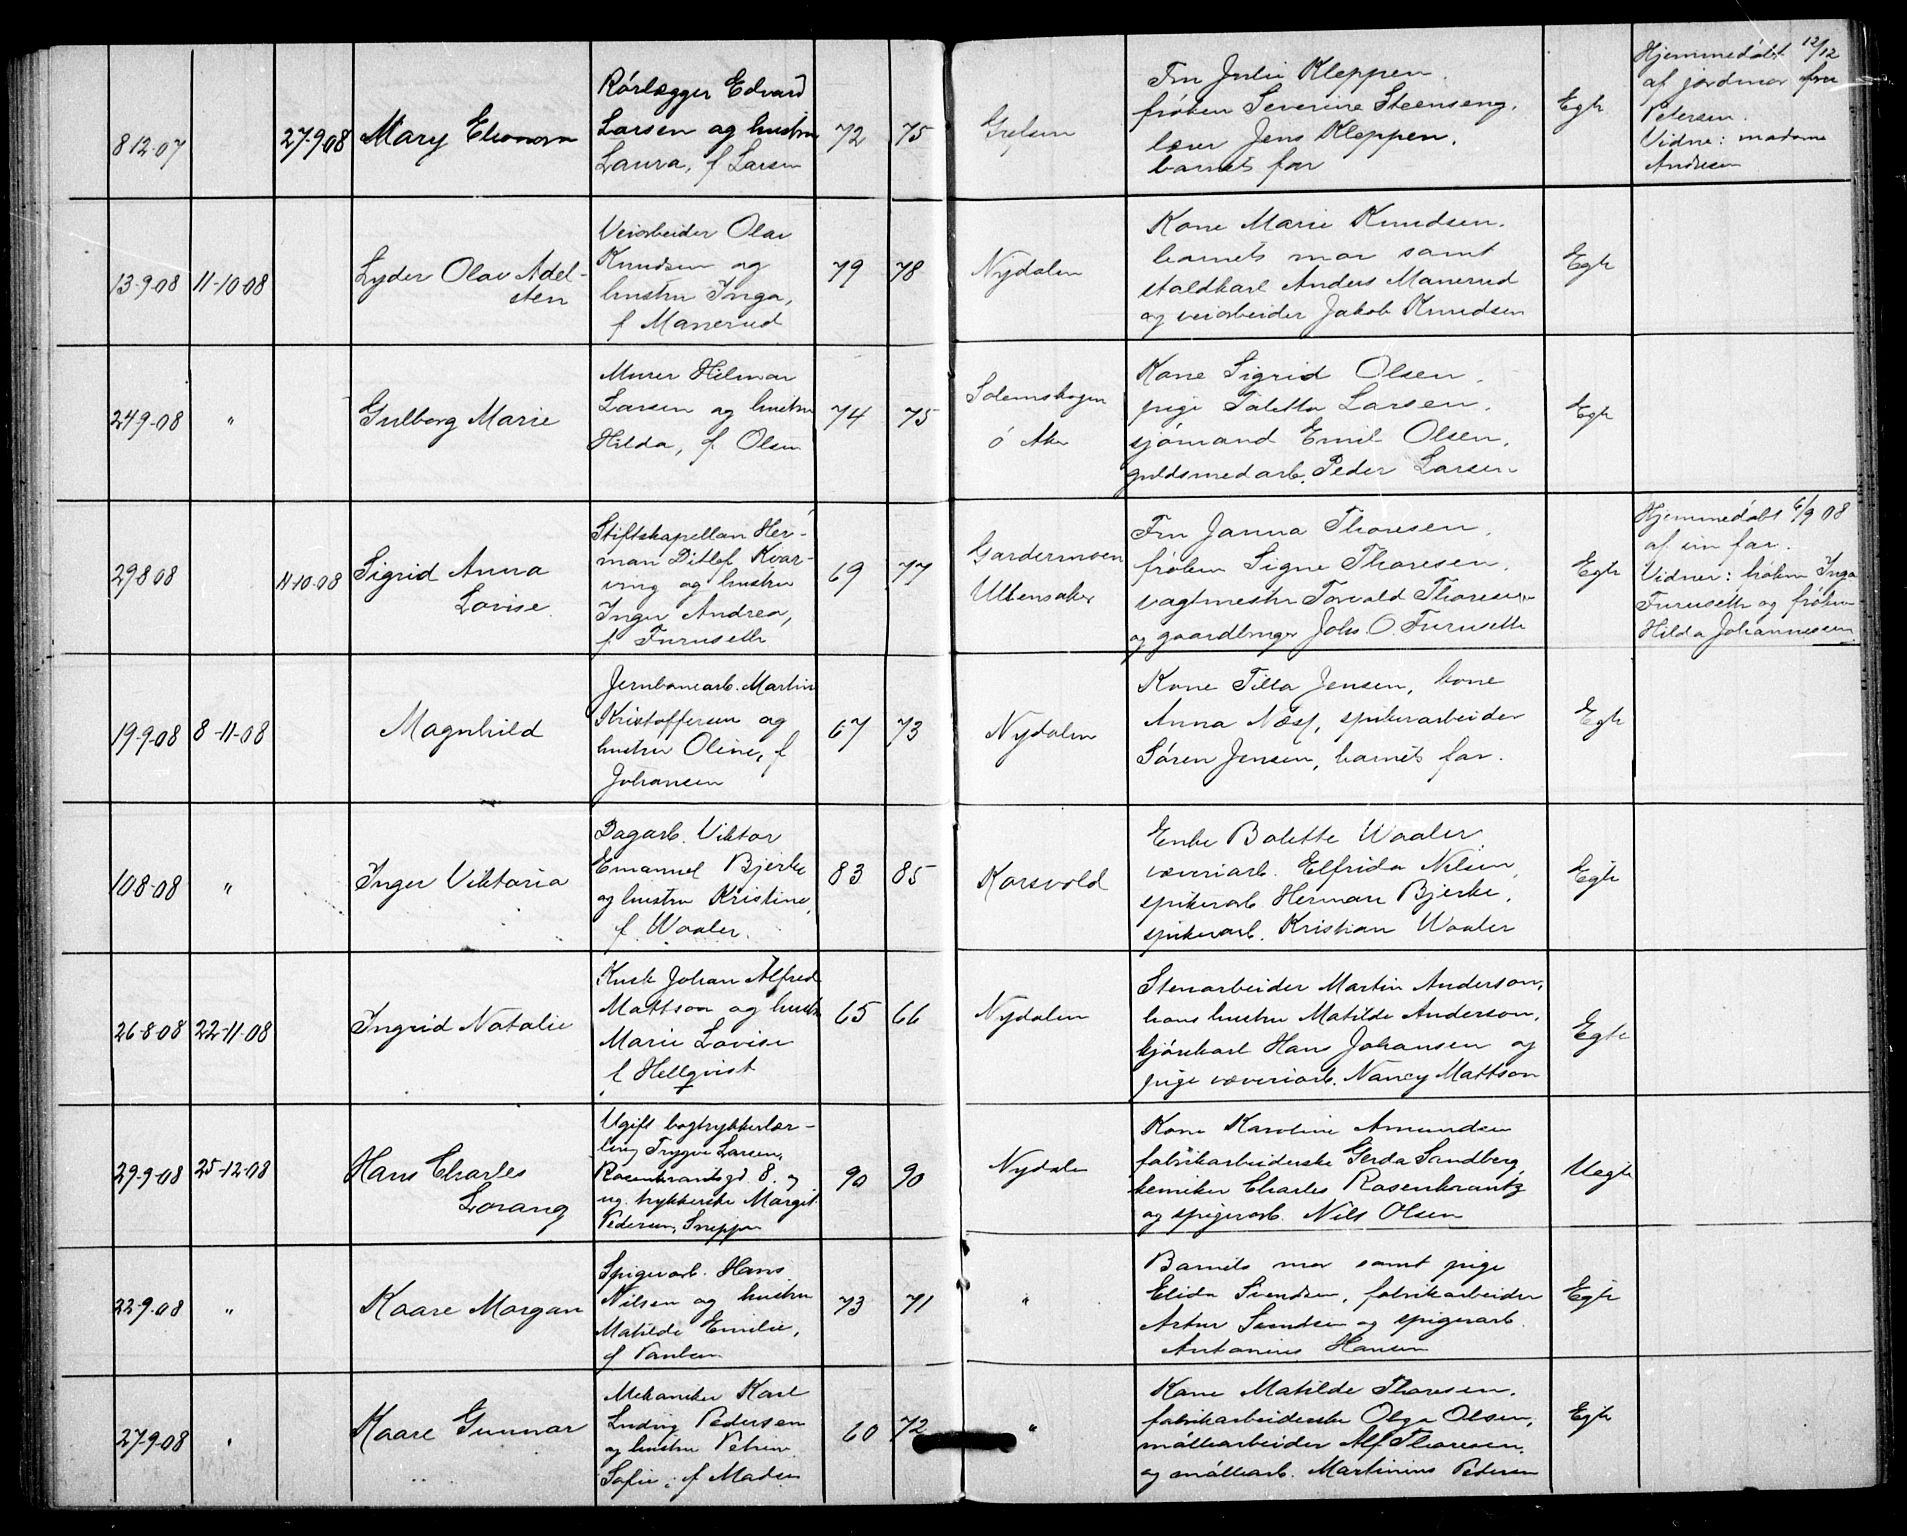 8-12-07
27-9-08
Mary Eleonora
Rørlægger Edvard
Larsen og hustru
Laura, f Larsen
72
75
Grefsen
Fru Julie Kleppen.
frøken Severine Steenseng.
lærer Jens Kleppen.
barnets far
Egte
Hjemmedøbt 12/12
af jordmor fru
Petersen.
Vidne: madame
Andresen
13-9-08
11-10-08
Lyder Olav Adel-
sten
Veiarbeider Olav
Knudsen og
hustru Inga,
f Manerud
79
78
Nydalen
Kone Marie Knudsen.
barnets mor samt
staldkarl Anders Manerud
og veiarbeider Jakob Knudsen
Egte
24-9-08
"
Gulborg Marie
Murer Hilmar
Larsen og hustru
Hilda, f Olsen
74
75
Solemskogen
Ø Aker
Kone Sigrid Olsen.
pige Taletta Larsen.
sjømand Emil Olsen.
guldsmedarb. Peder Larsen
Egte
29-8-08
11-10-08
Sigrid Anna
Lovise
Stiftskapellan Her-
man Ditlef Kvar-
ving og hustru
Inger Andrea,
f Furuseth
69
77
Gardermoen
Ullensaker
Fru Janna Thoresen.
frøken Signe Thoresen.
vagtmester Torvald Thoresen
og gaardbruger Johs. O. Furuseth
Egte
Hjemmedøbt 6/9 08
af sin far.
Vidner: frøken Inga
Furuseth og frøken
Hilda Johannessen
19-9-08
8-11-08
Magnhild
Jernbanearb. Martin
Kristoffersen og
hustru Oline, f
Johansen
67
73
Nydalen
Kone Tilla Jensen, kone
Anna Næss, spikerarbeider
Søren Jensen, barnets far.
Egte
10-8-08
"
Inger Viktoria
Dagarb. Viktor
Emanuel Bjerke
og hustru Kristine,
f. Waaler.
83
85
Korsvold
Enke Balette Waaler
væveriarb. Elfrida Nilsen,
spikerarb Herman Bjerke,
spikerarb. Kristian Waaler
Egte
26-8-08
22-11-08
Ingrid Natalie
Kusk Johan Alfred
Mattson og hustru
Marie Lovise
f Hellqvist
65
66
Nydalen
Stenarbeider Martin Anderson,
hans hustru Matilde Anderson,
kjørekarl Hans Johansen og
pige væveriarb. Nancy Mattson
Egte
29-9-08
25-12-08
Hans Charles
Lorang
Ugift bogtrykkerlær-
ling Trygve Larsen,
Rosenkrantsgd 8. og
ug. trykkerske Margit
Pedersen, Snippen
90
90
Nydalen
Kone Karoline Amundsen
fabrikarbeiderske Gerda Sandberg,
kemiker Charles Rosenkrantz
og spigerarb. Nils Olsen
Uegte
22-9-08
"
Kaare Morgan
Spigerarb. Hans
Nilsen og hustru
Matilde Emilie,
f Paulsen
73
71
"
Barnets mor samt pige
Elida Svendsen, fabrikarbeider
Artur Svendsen og spigerarb.
Antonius Hansen
Egte
27-9-08
"
Kaare Gunnar
Mekaniker Karl
Ludvig Pedersen
og hustru Petrine
Sofie, f Madsen
60
72
"
Kone Matilde Thoresen.
fabrikarbeiderske Olga Olsen,
møllearbeider Alf Thoresen.
og møllearb. Martinius Pedersen
Egte